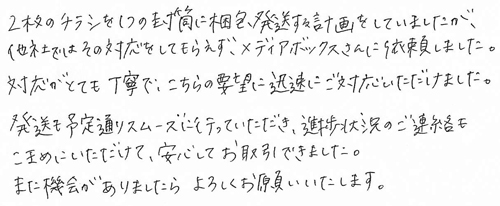 2枚のチラシを1つの封筒に梱包、発送する計画をしていましたが、
他社ではその対応をしてもらえず、メディアボックスさんに依頼しました。
対応がとても丁寧で、こちらの要望に迅速にご対応いただけました。
発送も予定通りスムーズに行っていただき、進捗状況のご連絡も
こまめにいただけて、安心してお取引できました。
また機会がありましたら よろしくお願いいたします。